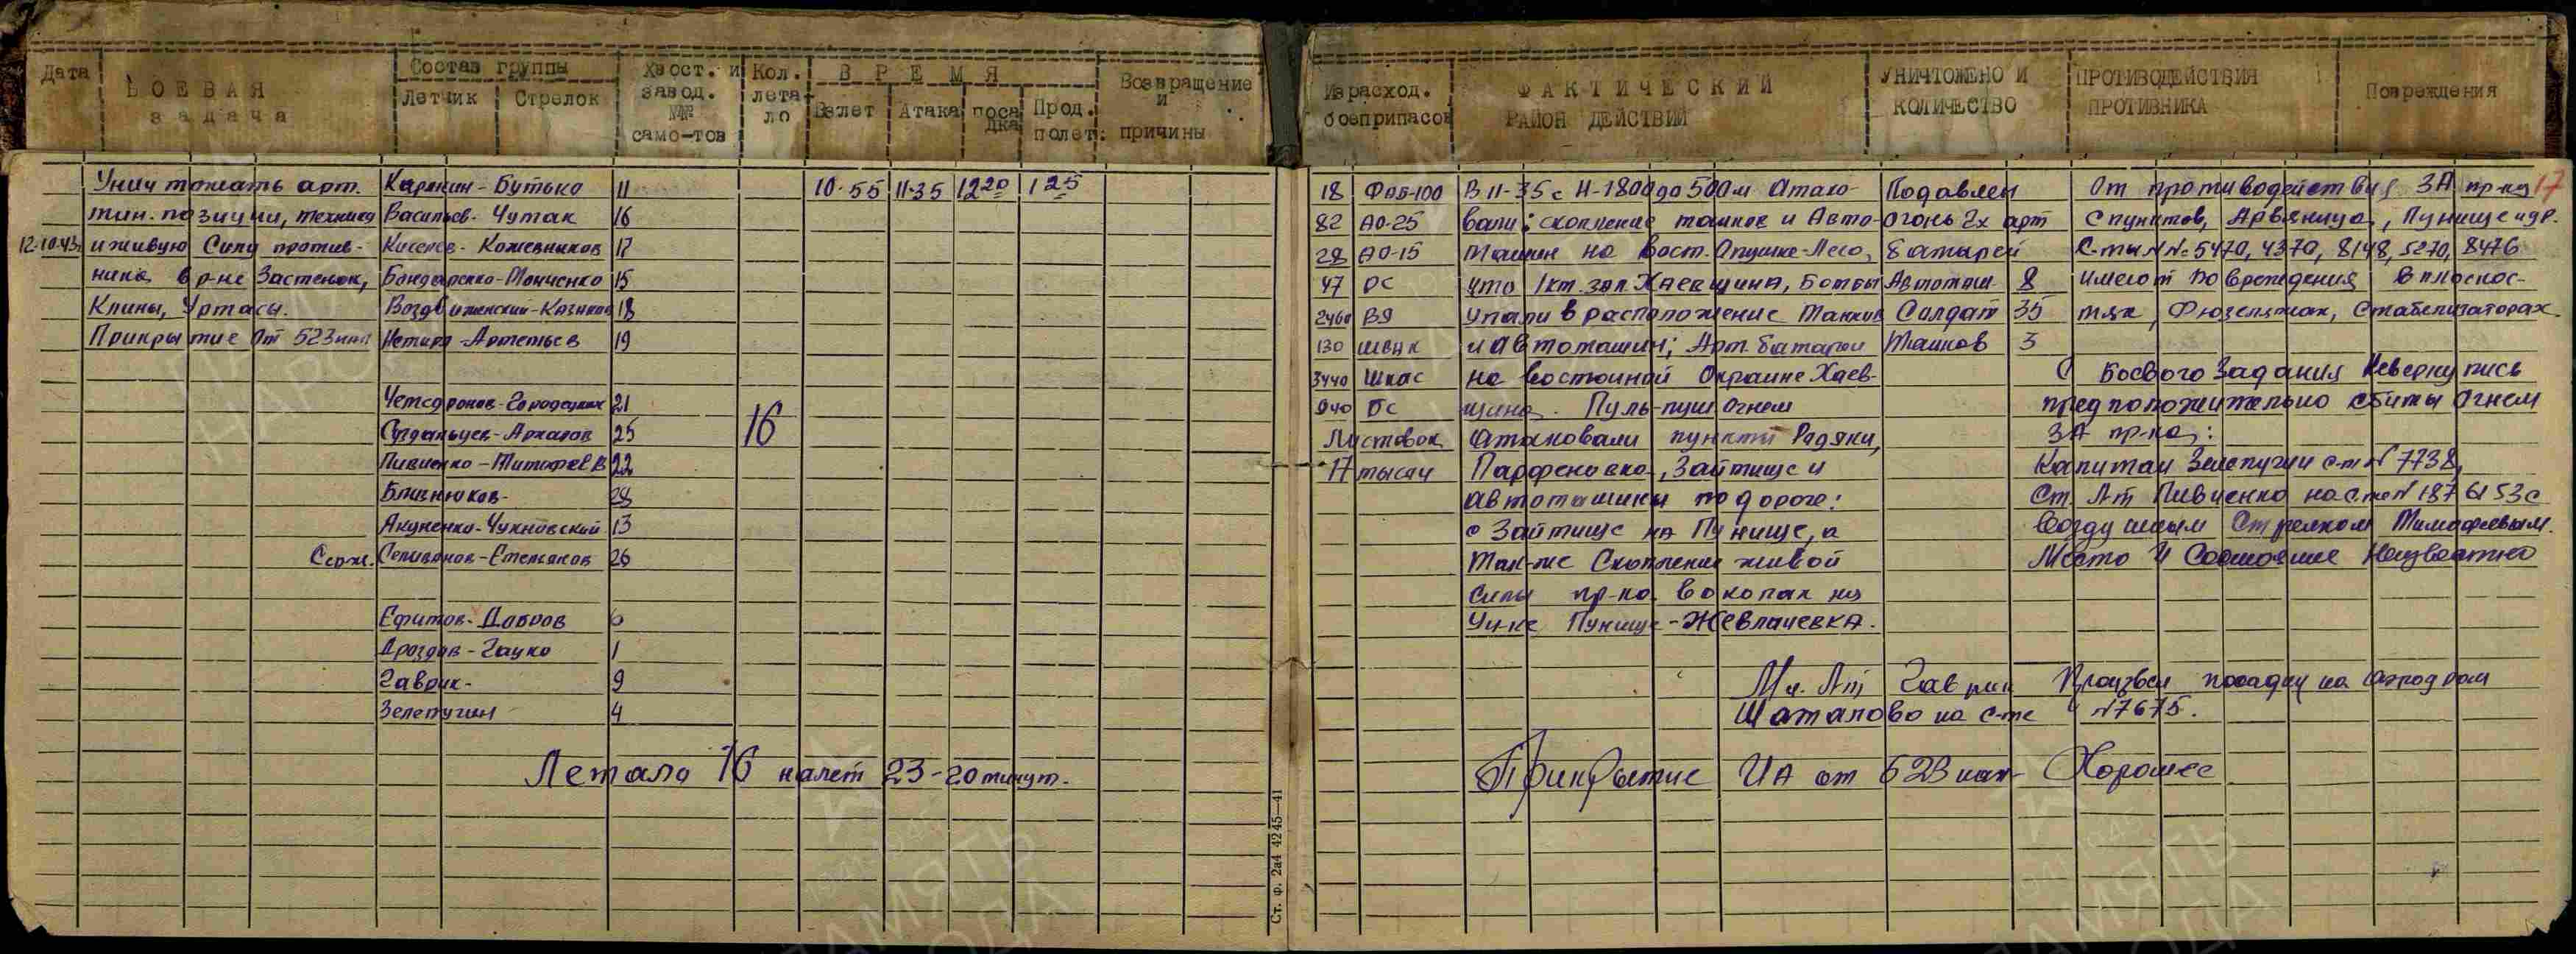 Дата
БОЕВАЯ
задача
Состав группы
Летчик Стрелок
Хвост. и
завод.
№№
само-тов
Кол.
лета-
ло
ВРЕМЯ
Взлет Атака поса
дка
Прод.
полет:
Возвращение
и
причины
Израсход.
боеприпасов
ФАКТИЧЕСКИЙ
РАЙОН ДЕЙСТВИЙ
УНИЧТОЖЕНО И
КОЛИЧЕСТВО
ПРОТИВОДЕЙСТВИЯ
ПРОТИВНИКА
Повреждения
17
12.10.43г
Уничтожать арт.
мин. позиции, технику
и живую силу против-
ника в р-не Застенок,
Клины, Уртасы.
Прикрытие от 523 иап
Карякин - Бутько 11
Васильев - Чумак 16
Киселев - Кожевников 17
Бондаренко - 15
Воздвиженский - 18
- Артемьев 19
- Городецких 21
- 25
Пивненко - Тимофеев 22
Близнюков - 28
Якуненко - Чухновский 13
Серж. Селиванов - Степанов 26
Ефимов - Добров 6
Дроздов - Гацко 1
Гаврик - 9
Зелепугин 4
16
10-55 11-35 12 20 1 25
Летало 16 налет 23-20 минут.
18 ФАБ-100
82 АО-25
28 АО-15
47 РС
2460 ВЯ
130 ШВАК
3440 Шкас
940 БС
Листовок
17 тысяч
В 11-35 с Н-1800 до 500м Атако-
вали: скопление танков и Авто-
машин на вост. Опушке-Леса,
что 1 км. зап. Хаевщина, Бомбы
упали в расположение танков
и автомашин; Арт. батареи
на восточной Окраине Хаев-
щина. Пуль-пуш огнем
Атаковали пункты Редяки,
Парфеновка, Займище и
автомашины по дороге:
с Займище на Пунище, а
так-же Скопление живой
силы пр-ка в окопах на
уч-ке Пунище - Жевлачевка.
Подавлен
огонь 2х арт
батарей
Автомаш. 8
Солдат 35
Танков 3
От противодействия ЗА пр-ка
с пунктов, Арвяница, Пунище и др.
С-ты №№ 5470, 4370, 8148, 5270, 8476
имеют повреждения в плоскос-
тях, Фюзеляжах, Стабилизаторах.
С Боевого Задания не вернулись
предположительно сбиты огнем
ЗА пр-ка:
Капитан Зелепугин с-т № 7738,
Ст. Лт Пивненко на с-те № 1876153 с
воздушным стрелком Тимофеевым.
Место и Состояние Неизвестно
Мл. Лт Гаврик Произвел посадку на аэродром
Шаталово на с-те № 7675.
Прикрытие ИА от 523 иап - Хорошее
Ст. ф. 2а4 4245—41
ПАМЯТЬ
НАРОДА